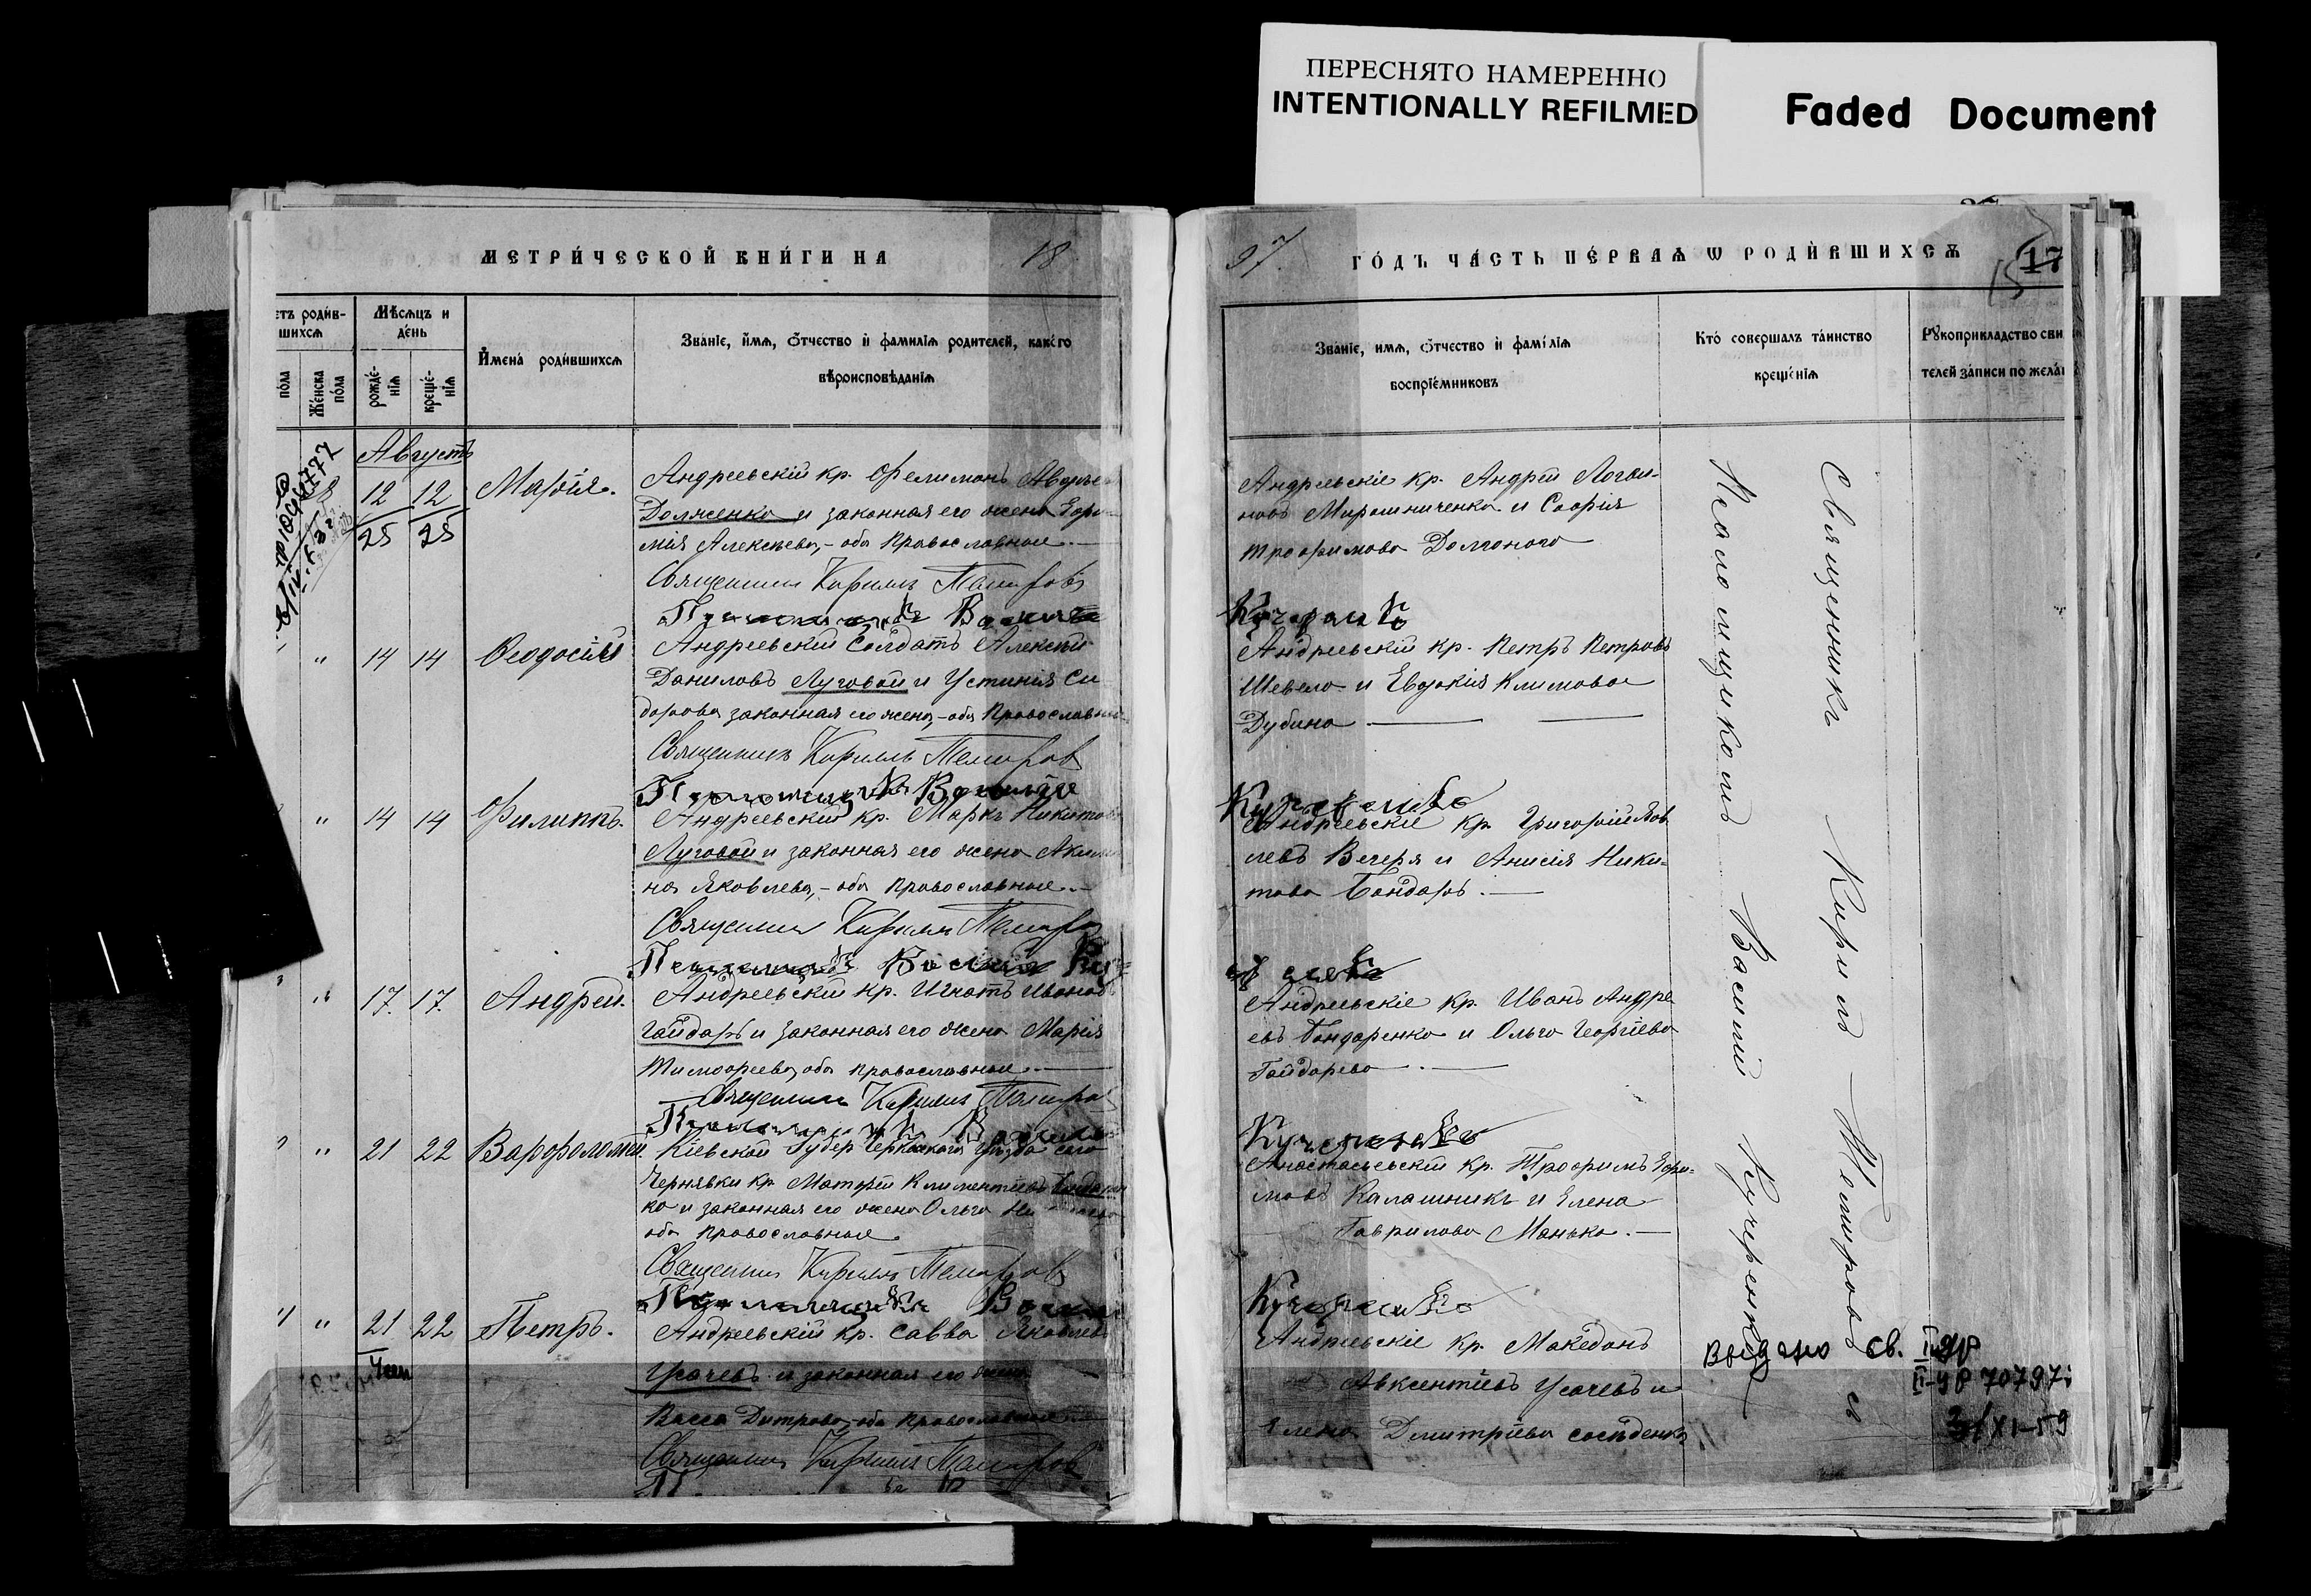 ПЕРЕСНЯТО НАМЕРЕННО
INTENTIONALLY REFILMED
Faded Document
МЕТРИ́ЧЕСКОЙ КНИ́ГИ НА 18
97. ГО́ДЪ ЧА́СТЬ ПЕ́РВАѦ Ѡ РОДИ́ВШИХСѦ 17
15
етъ роди́в-
шихсѧ
по́ла
Же́нска по́ла
Мѣ́сѧцъ и де́нь
рожде́-нїѧ
креще́-нїѧ
И҆мена̀ роди́вшихсѧ
Зва́нїе, и҆́мѧ, ѻ҆́тчество и҆ фами́лїѧ роди́телей, како́го
вѣроисповѣ́данїѧ
Зва́нїе, имѧ, ѻ҆́тчество и҆ фамі́лїѧ
воспрїе́мниковъ
Кто̀ соверша́лъ та́инство
креще́нїѧ
Рꙋкоприкла́дство сви
телей за́писи по жела́
Августъ
8 12 12 Марія.
25 25
Андреевскій кр. Филимонъ
Долженко и законная его жена Евфи-
мія Алексѣева, – оба православные. —
Священникъ Кириллъ Темировъ
Андреевскіе кр. Андрей Логви-
новъ Мирошниченко и Софія
Трофимова Должного
" 14 14 Ѳеодосій
Андреевскій Солдатъ Алексѣй
Даниловъ Луговой и Устинія Си
дорова законная его жена, – оба Православные
Священникъ Кириллъ Темировъ
Андреевскій кр. Петръ Петровъ
Шевело и Евдокія Климова
Дубина
" 14 14 Филиппъ.
Андреевскій кр. Маркъ Никитовъ
Луговой и законная его жена Акили
на Яковлева, – оба православные. —
Священникъ Кириллъ Темировъ
Андреевскіе кр. Григорій Яков
левъ Вечеря и Анисія Ники-
това Бондарь. —
" 17. 17. Андрей.
Андреевскій кр. Игнатъ Ивановъ
Гайдарь и законная его жена Марія
Тимофеева, оба православные. —
Священникъ Кириллъ Темировъ
Андреевскіе кр. Иванъ Андре
евъ Бондаренко и Ольга Георгіева
Гайдарева. —
" 21 22 Варфоломей.
Кіевской Губер Черкаскаго уѣзда села
Чернявки кр. Матфей Климентіевъ
ко и законная его жена Ольга
оба православные.
Священникъ Кириллъ Темировъ
Анастасьевскій кр. Трофимъ Ефи-
мовъ Калашникъ и Елена
Гаврилова Манько. —
" 21 22 Петръ.
Андреевскій кр. Савва Яковлевъ
Усачевъ и законная его жена
Васса Дмитрова, оба православные
Священникъ Кириллъ Темировъ
Андреевскіе кр. Македонъ
Авксентіевъ Усачевъ и
Елена Дмитріева
Священникъ Кириллъ Темировъ съ
Псаломщикомъ Василій Кучеренко
Выдано св. I-УР
II-УР 70797
31/XI-59